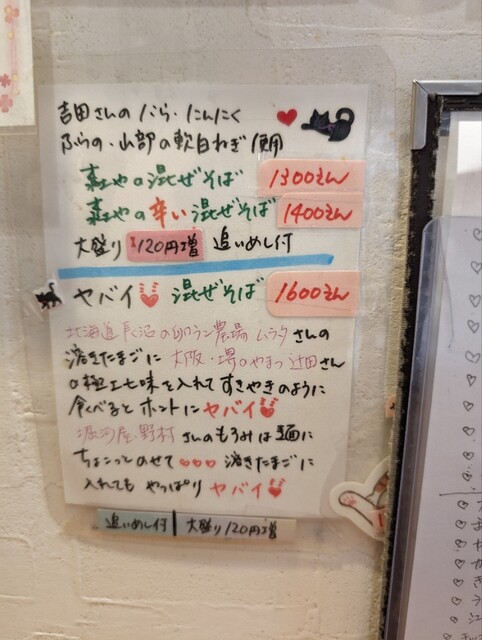 吉田さんのバラ・にんにく
ふらの・山部の軟白ねぎ使用
森やの混ぜそば 1300えん
森やの辛い混ぜそば 1400えん
大盛り ¥120円増 追いめし付
ヤバイ 混ぜそば 1600えん
北海道長沼の 農場 ムラタさんの
溶きたまごに 大阪・堺のやまつ辻田さん
の極上七味を入れて すきやきのように
食べるとホントにヤバイ
堀河屋・野村さんのもろみは麺に
ちょこっとのせて 溶きたまごに
入れても やっぱり ヤバイ
追いめし付 大盛り120円増